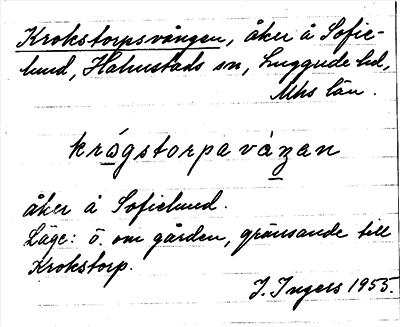 Krokstorpsvången, åker å Sofie-
lund, Halmstads sn, Luggude hd,
Mhs län.
krǻgstorpavàŋan
åker å Sofielund.
Läge: ö. om gården, gränsande till
Krokstorp.
I. Ingers 1955.